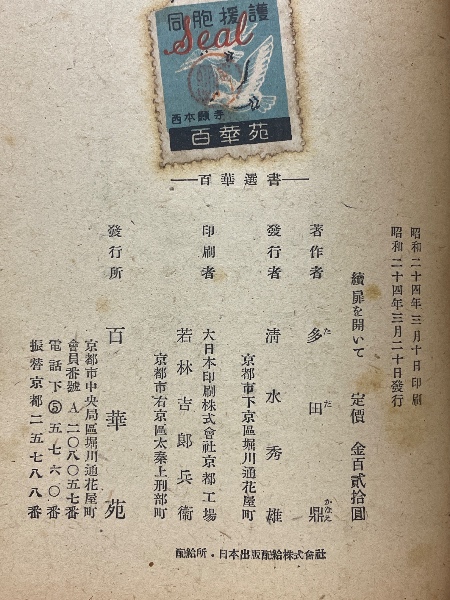 同胞援護
Seal
西本願寺
百華苑
百華選書
昭和二十四年三月十日印刷
昭和二十四年三月二十日發行
續扉を開いて 定價 金百貳拾圓
著作者 多田鼎
ただかなえ
發行者 淸水秀雄
京都市下京區堀川通花屋町
印刷者 大日本印刷株式會社京都工場
若林吉郞兵衞
京都市右京區太秦上刑部町
發行所 百華苑
京都市中央局區堀川通花屋町
會員番號 A二〇八〇五七番
電話下⑤五七六〇番
振替京都二五七八八番
配給所・日本出版配給株式會社